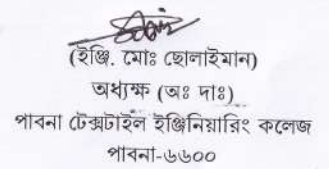 (ইঞ্জি. মোঃ ছোলাইমান)
অধ্যক্ষ (অঃ দাঃ)
পাবনা টেক্সটাইল ইঞ্জিনিয়ারিং কলেজ
পাবনা-৬৬০০